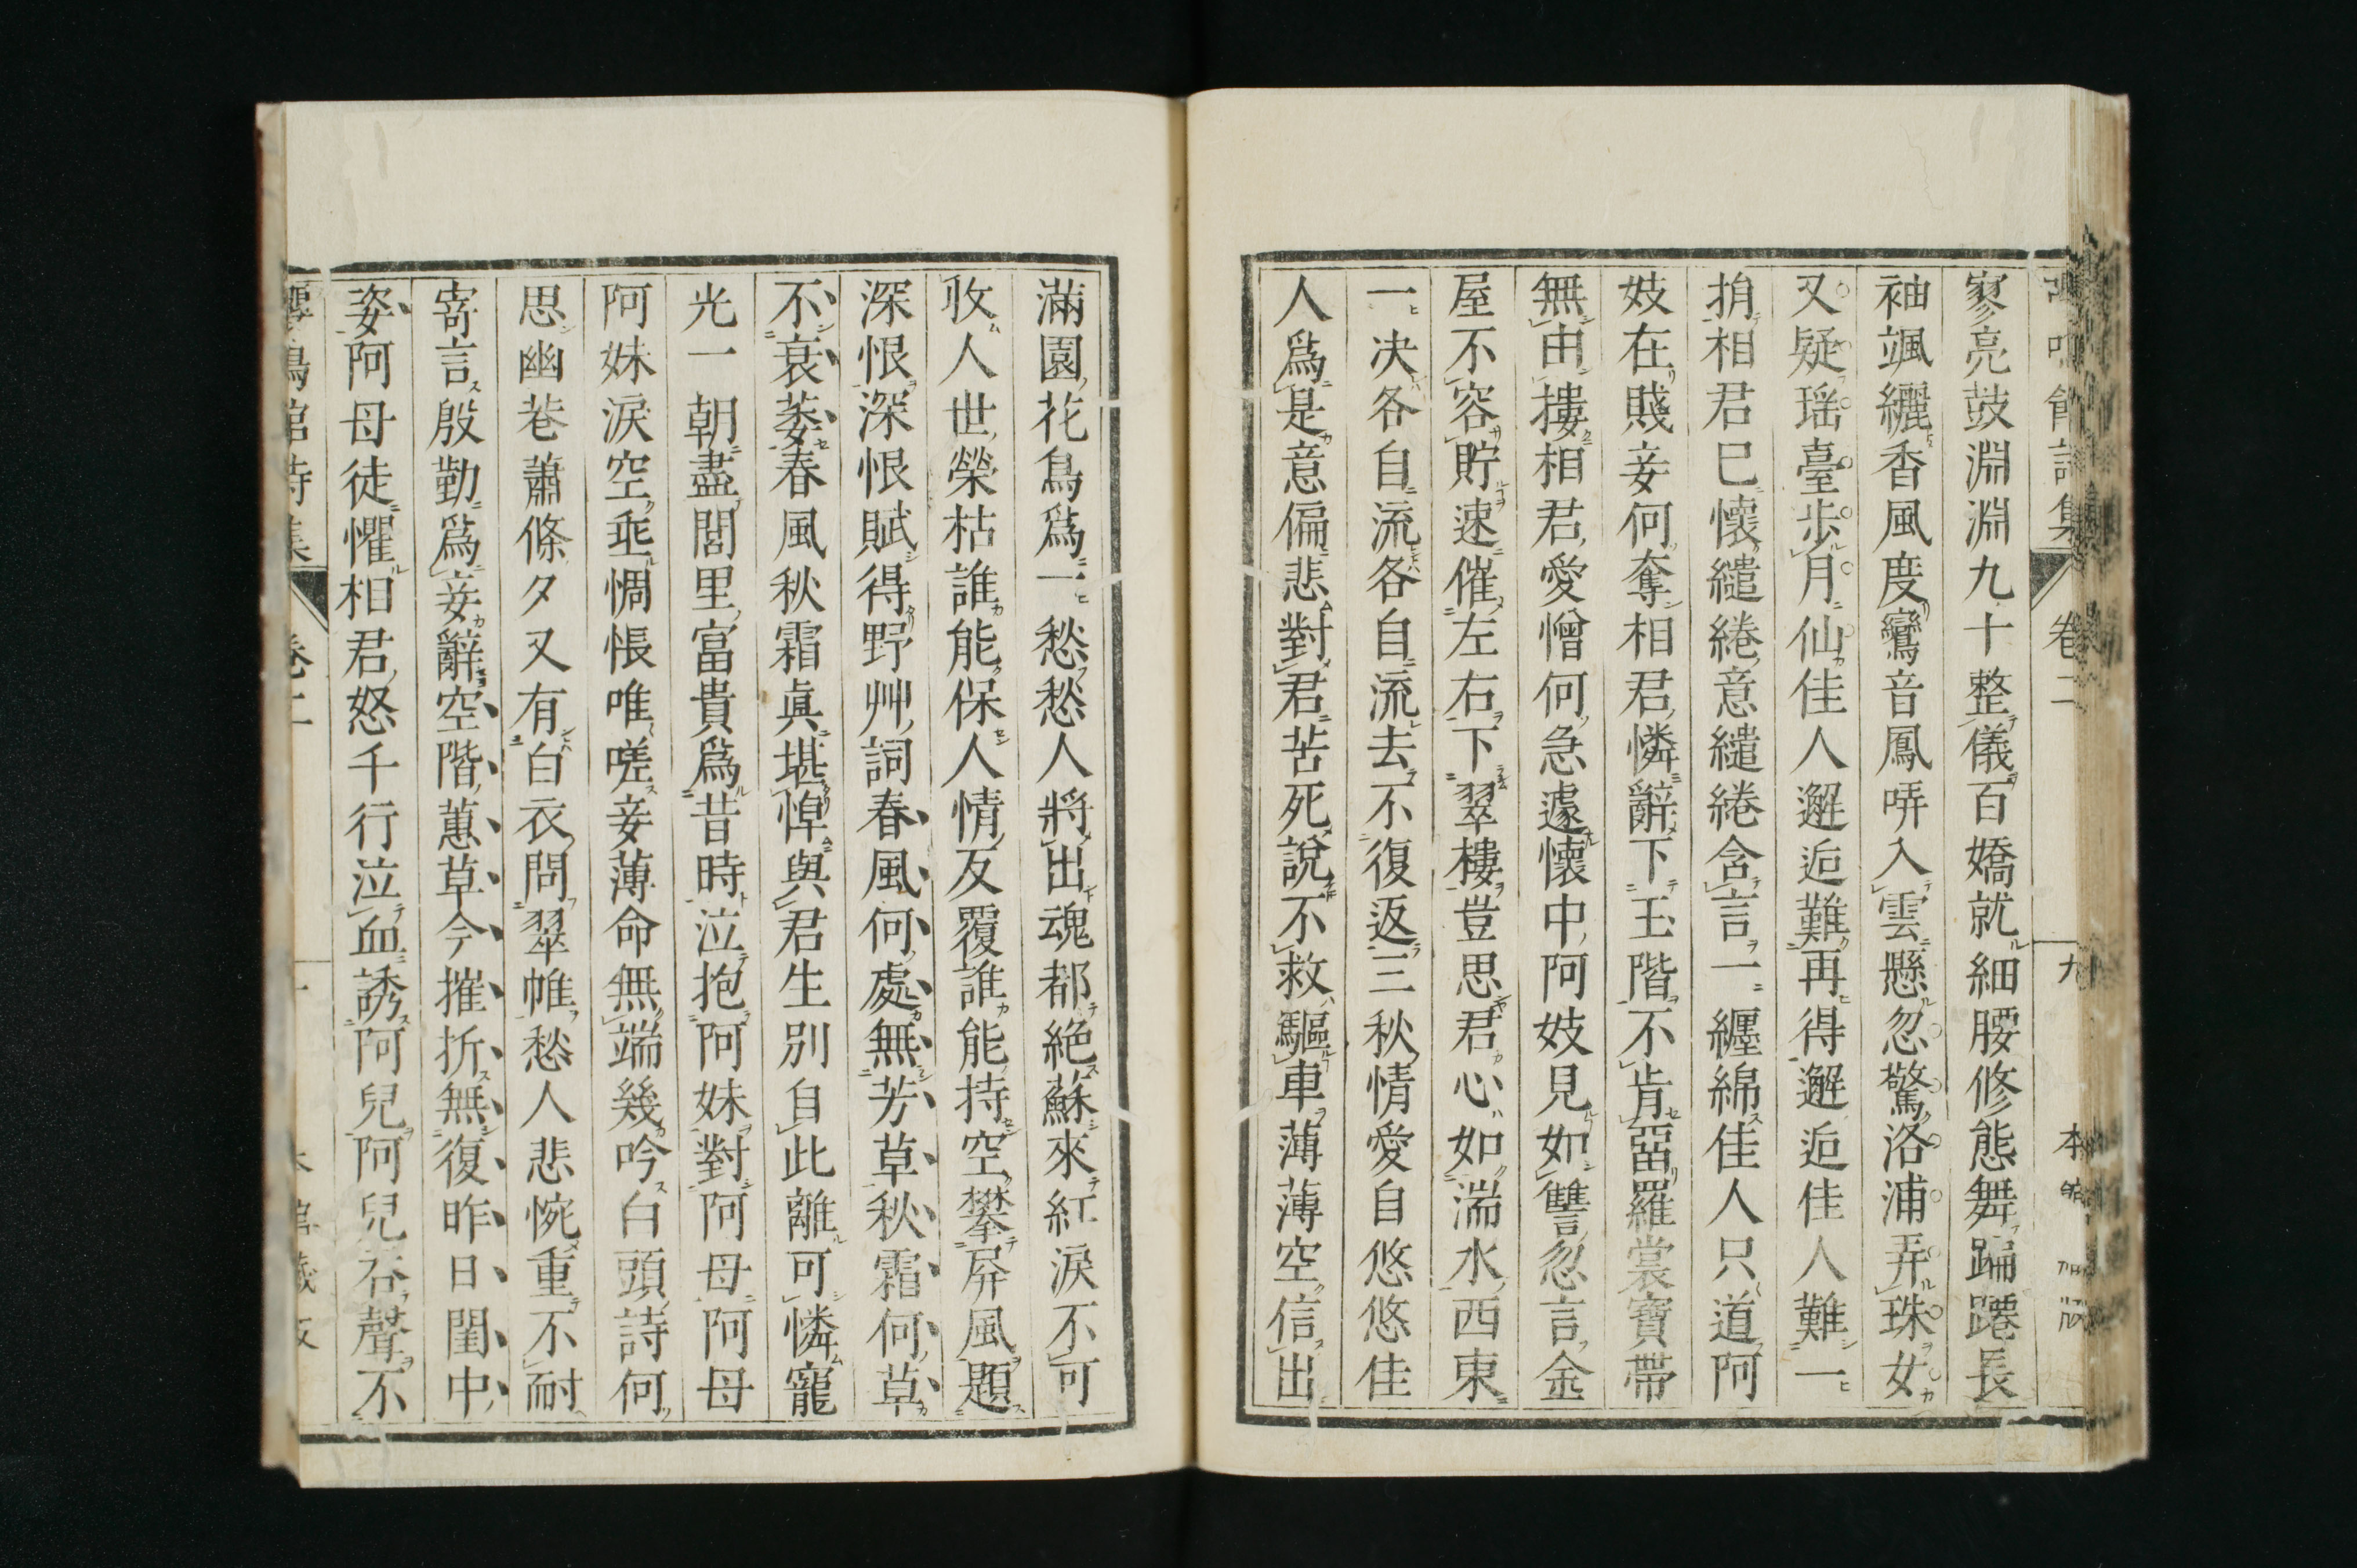 館詩集 卷二 九 本館 版
寥亮鼓淵淵九十整儀百嬌就細腰修態舞蹁躚長
袖颯纚香風度鸞音鳳哢入雲懸忽驚洛浦弄珠女
又疑瑶臺步月仙佳人邂逅難再得邂逅佳人難一
捐相君巳懷繾綣意繾綣含言一纏綿佳人只道阿
妓在賤妾何奪相君憐辭下玉階不肯罶羅裳寶帶
無由摟相君愛憎何急遽懷中阿妓見如讐忽言金
屋不容貯速催左右下翠樓豈思君心如湍水西東
一決各自流各自流去不復返三秋情愛自悠悠佳
人爲是意偏悲對君苦死說不救驅車薄薄空信出
滿園花鳥爲一愁愁人將出魂都絕蘇來紅淚不可
收人世榮枯誰能保人情反覆誰能持空攀屏風題
深恨深恨賦得野艸詞春風何處無芳草秋霜何草
不衰萎春風秋霜眞堪悼與君生別自此離可憐寵
光一朝盡閭里富貴爲昔時泣抱阿妹對阿母阿母
阿妹淚空垂惆悵唯嗟妾薄命無端幾吟白頭詩何
思幽巷蕭條夕又有白衣問翠帷愁人悲惋重不耐
寄言殷勤爲妾辭空階蕙草今摧折無復昨日閨中
姿阿母徒懼相君怒千行泣血誘阿兒阿兒吞聲不
鳥館詩集 卷二